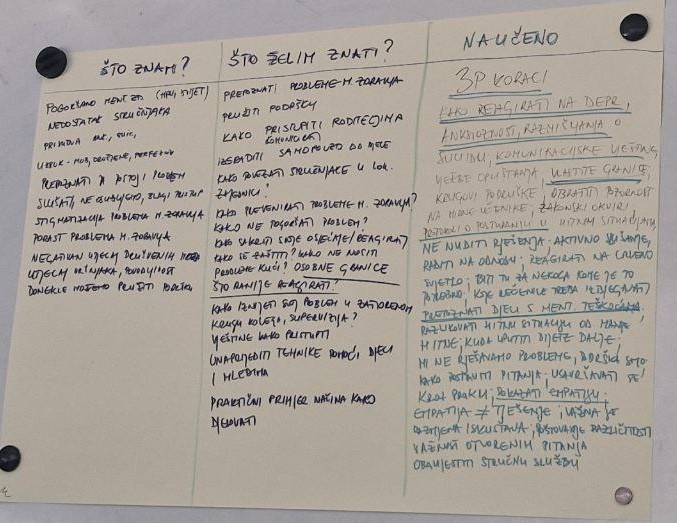 ŠTO ZNAM?
POGORŠANO MENT. ZD.
NEDOSTATAK STRUČNJAKA
PREPOZNATI DA POSTOJI PROBLEM
SLUŠATI, NE OSUĐIVATI, BLAGI PRISTUP
STIGMATIZACIJA PROBLEMA M. ZDRAVLJA
PORAST PROBLEMA M. ZDRAVLJA
NEGATIVAN UTJECAJ DRUŠTVENIH MREŽA
UTJECAJ VRŠNJAKA,
DONEKLE MOŽEMO PRUŽITI PODRŠKU
ŠTO ŽELIM ZNATI?
PREPOZNATI PROBLEME M. ZDRAVLJA
PRUŽITI PODRŠKU
KAKO PRISTUPITI RODITELJIMA
KOMUNICIRATI
IZGRADITI SAMOPOUZD. DJETETA
KAKO POVEZATI STRUČNJACE U LOK.
ZAJEDNICI?
KAKO PREVENIRATI PROBLEME M. ZDRAVLJA?
KAKO NE POGORŠATI PROBLEM?
KAKO SAKRITI SVOJE OSJEĆAJE/REAGIRATI
KAKO SE ZAŠTITI? KAKO NE NOSITI
PROBLEME KUĆI? OSOBNE GRANICE
ŠTO RANIJE REAGIRATI?
KAKO IZNIJETI SVOJ PROBLEM U ZATVORENOM
KRUGU KOLEGA, SUPERVIZIJA?
VJEŠTINE KAKO PRISTUPITI
UNAPRIJEDITI TEHNIKE POMOĆI DJECI
I MLADIMA
PRAKTIČNI PRIMJER NAČINA KAKO
DJELOVATI
NAUČENO
3P KORACI
KAKO REAGIRATI NA DEPR.,
ANKSIOZNOST, RAZMIŠLJANJA O
SUICIDU, KOMUNIKACIJSKE VJEŠTINE,
VJEŽBE OPUŠTANJA, ZAŠTITE GRANICE,
KRUGOVI PODRŠKE, OBRATITI POZORNOST
NA MIRNE UČENIKE, ZAKONSKI OKVIRI
PROTOKOL O POSTUPANJU U HITNIM SITUACIJAMA,
NE NUDITI RJEŠENJA - AKTIVNO SLUŠANJE,
RADITI NA ODNOSU; REAGIRATI NA CRVENO
SVJETLO; BITI TU ZA NEKOGA KOME JE TO
POTREBNO; KOJE REČENICE TREBA IZBJEGAVATI
PREPOZNATI DJECU S MENT. TEŠKOĆAMA,
RAZLIKOVATI HITNU SITUACIJU OD MANJE
HITNE; KUDA UPUTITI DIJETE DALJE;
MI NE RJEŠAVAMO PROBLEME, PODRŠKA SMO
KAKO POSTAVITI PITANJA; USAVRŠAVATI SE
KROZ PRAKSU; POKAZATI EMPATIJU;
EMPATIJA ≠ TJEŠENJE; VAŽNA JE
RAZMJENA ISKUSTAVA, POŠTOVANJE RAZLIČITOSTI
VAŽNOST OTVORENIH PITANJA
OBAVIJESTITI STRUČNU SLUŽBU